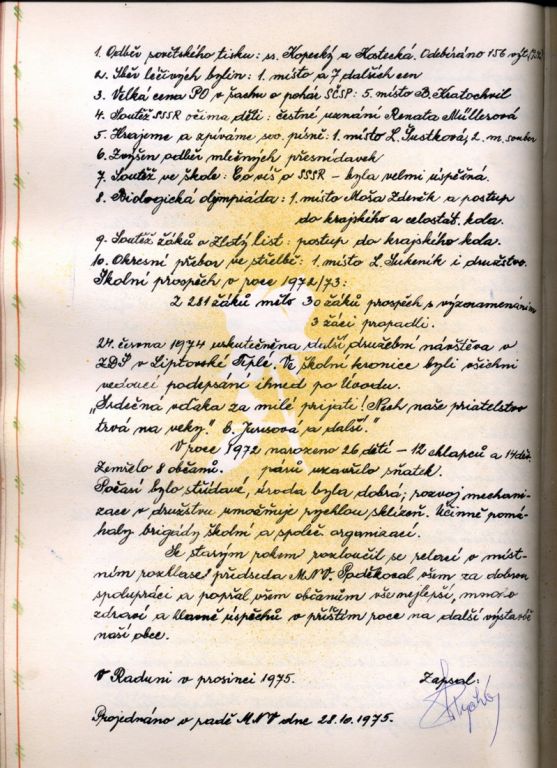 1. Odběr sovětského tisku: ss. Kopecký a Kostecká. Odebíráno 156 výt.
2. Sběr léčivých bylin: 1. místo a 7 dalších cen
3. Velká cena PO v šachu o pohár SČSP: 5. místo B. Kratochvil
4. Soutěž SSSR očima dětí: čestné uznání Renata Müllerová
5. Hrajeme a zpíváme sov. písně: 1. místo L. Šustková, 2. m. soubor
6. Zvýšen odběr mléčných přesnídávek
7. Soutěž ve škole: Co víš o SSSR – byla velmi úspěšná.
8. Biologická olympiáda: 1. místo Moša Zdeněk a postup
do krajského a celostát. kola.
9. Soutěž žáků o Zlatý list: postup do krajského kola.
10. Okresní přebor ve střelbě: 1. místo L. Sukeník i družstvo.
Školní prospěch v roce 1972/73:
Z 281 žáků mělo 30 žáků prospěch s vyznamenáním
3 žáci propadli.
24. června 1974 uskutečněna další družební návštěva v
ZDŠ v Liptovské Teplé. Ve školní kronice byli všichni
vedoucí podepsáni ihned po úvodu.
„Srdečná vďaka za milé prijati! Nech naše priatelstvo
trvá na veky." E. Juresová a další."
V roce 1972 narozeno 26 dětí – 12 chlapců a 14 děv.
Zemřelo 8 občanů. párů uzavřelo sňatek.
Počasí bylo střídavé, úroda byla dobrá; rozvoj mechani-
zace v družstvu umožňuje rychlou sklizeň. Účinně pomá-
haly brigády školní a společ. organizací.
Se starým rokem rozloučil se relací v míst-
ním rozhlase předseda MNV. Poděkoval všem za dobrou
spolupráci a popřál všem občanům vše nejlepší, mnoho
zdraví a hlavně úspěchů v příštím roce na další výstavbě
naší obce.
V Raduni v prosinci 1975. Zapsal:
Projednáno v radě MNV dne 28.10.1975.